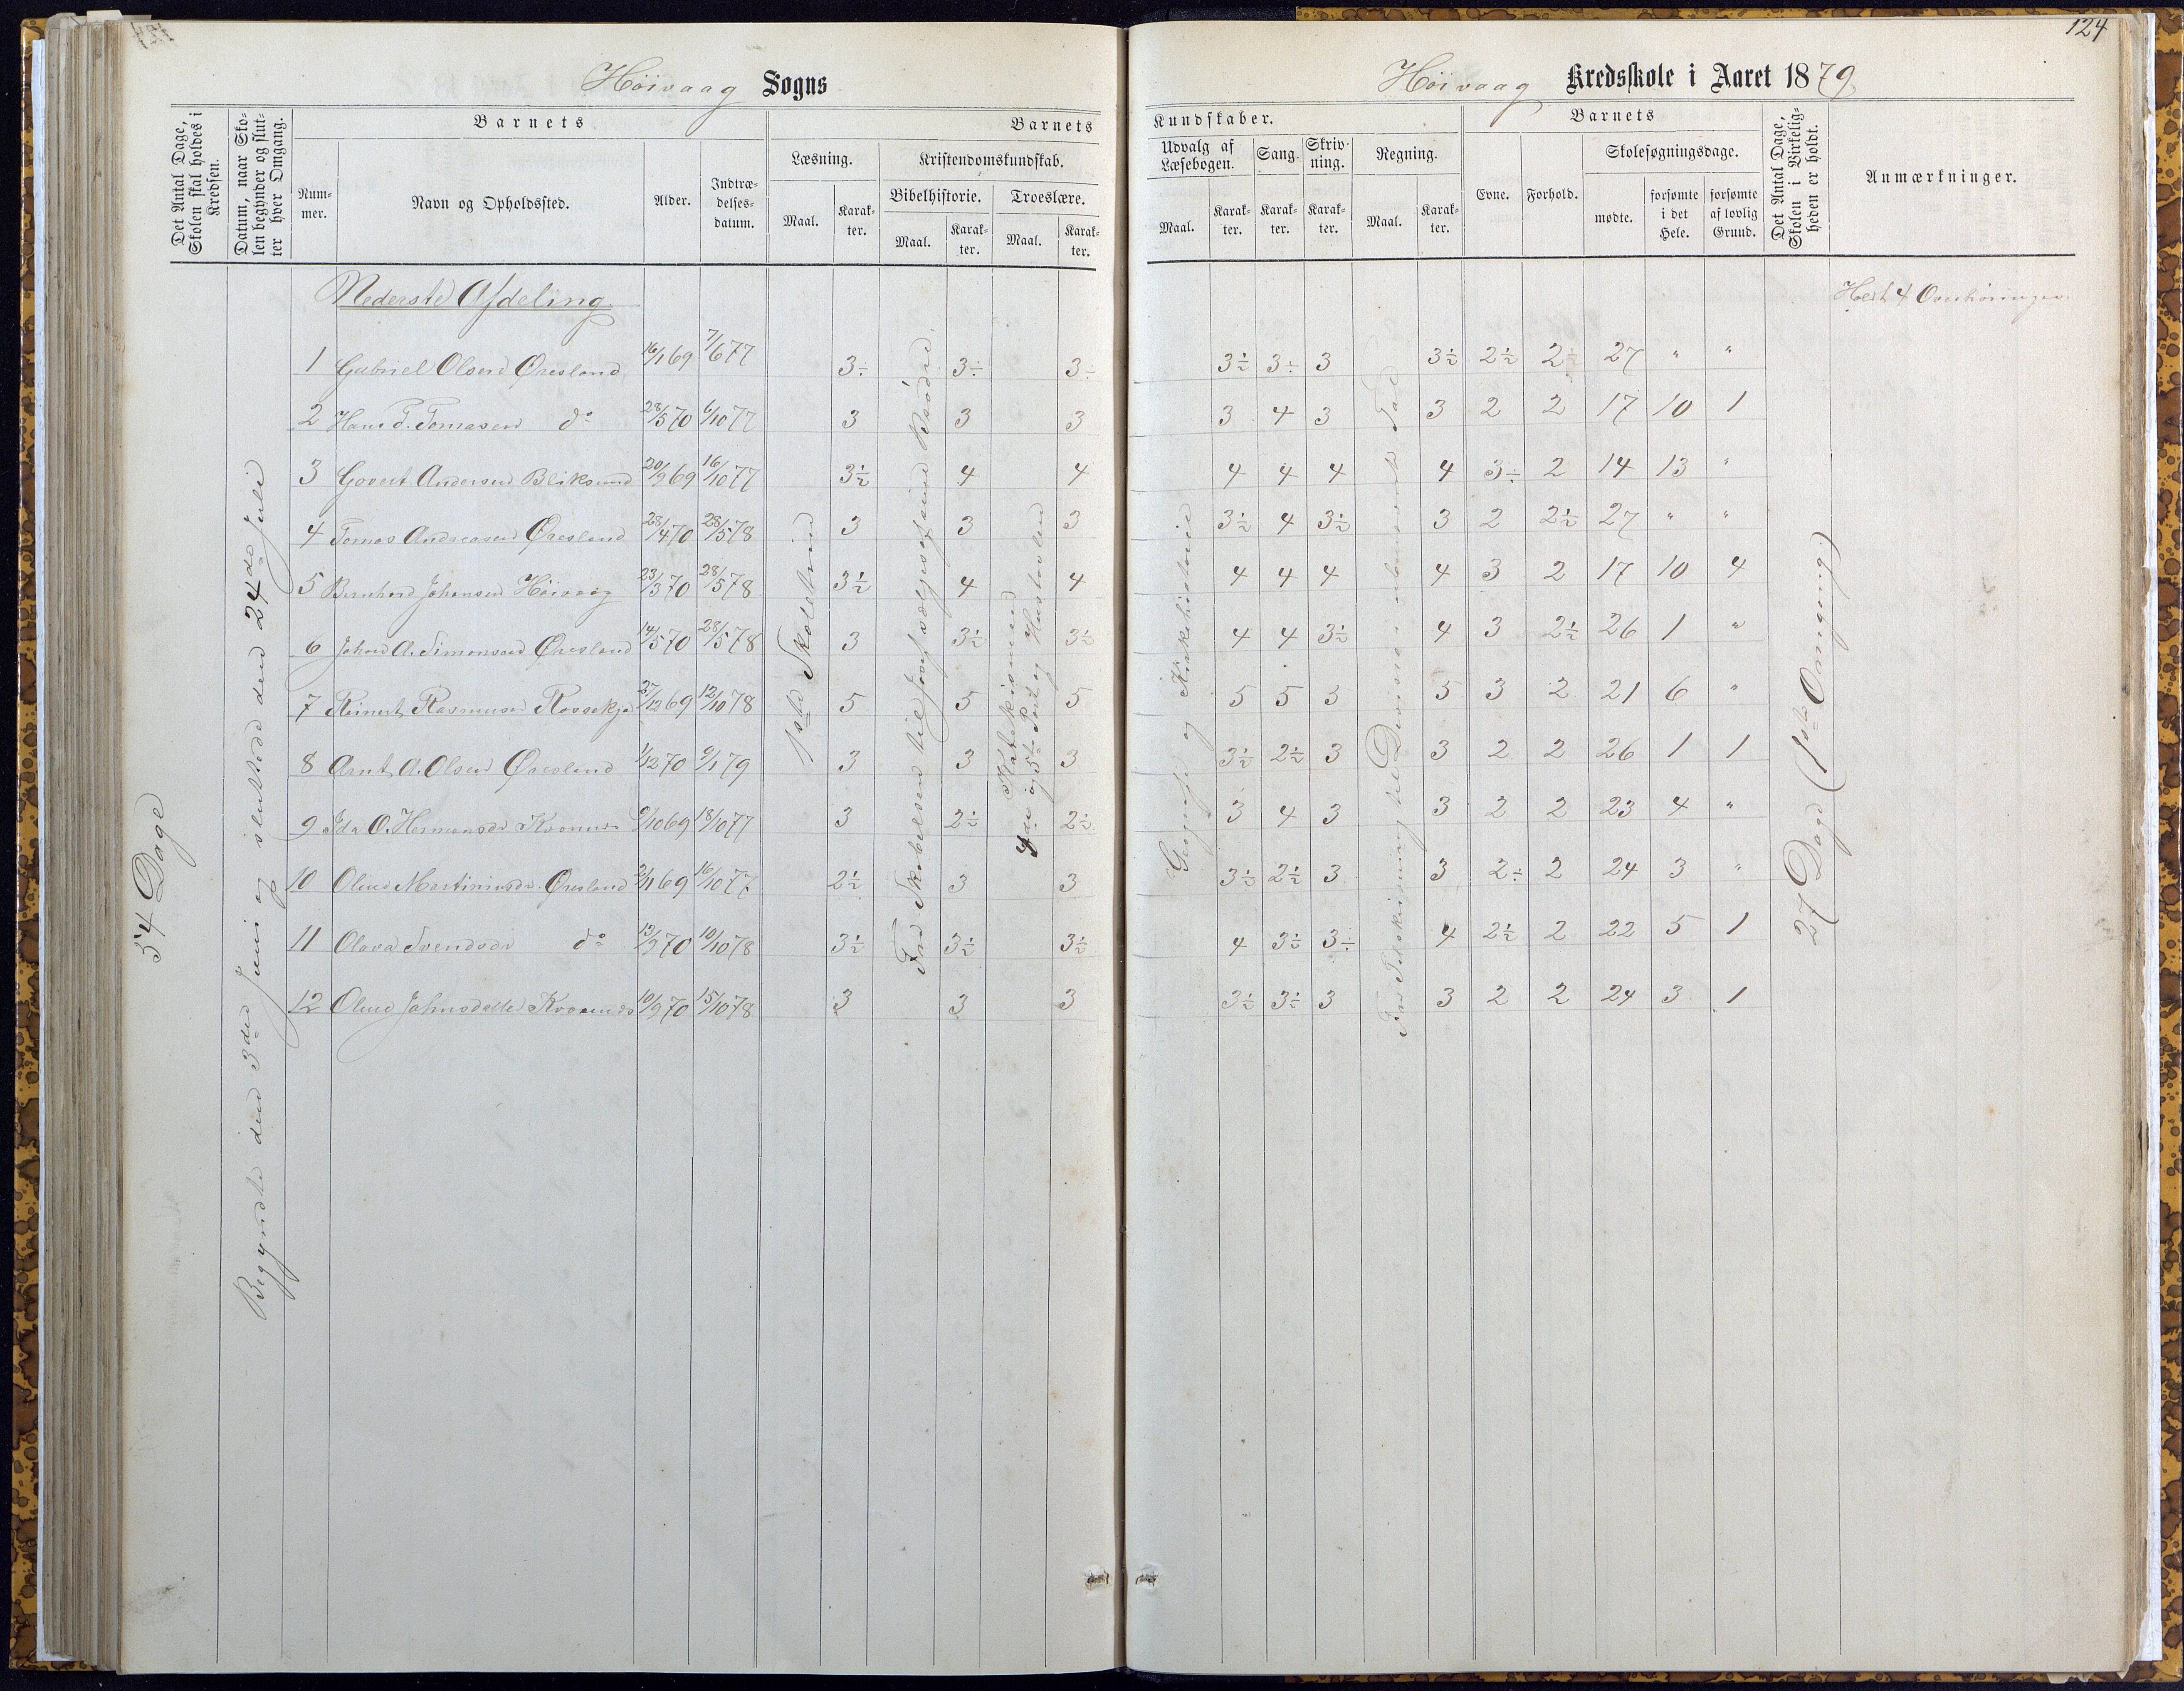 124
Höivaag Sogns
Höivaag Kredsskole i Aaret 1879
Det Antal Dage, Skolen skal holdes i Kredsen.
Datum, naar Skolen begynder og slutter hver Omgang.
Barnets
Nummer.
Navn og Opholdssted.
Alder.
Indtrædelsesdatum.
Barnets Kundskaber.
Læsning.
Maal.
Karakter.
Kristendomskundskab.
Bibelhistorie.
Maal.
Karakter.
Troeslære.
Maal.
Karakter.
Udvalg af Læsebogen.
Maal.
Karakter.
Sang.
Karakter.
Skrivning.
Karakter.
Regning.
Maal.
Karakter.
Barnets
Evne.
Forhold.
Skolesøgningsdage.
mødte.
forsømte i det Hele.
forsømte af lovlig Grund.
Det Antal Dage, Skolen i Virkeligheden er holdt.
Anmærkninger.
54 Dage
Begyndte den 3die Juni og sluttede den 24de Juli
Nederste Afdeling
1ste Skoletrin
Fra Skabelsen til Josef sælges af sine Brödre
Katekismen
4de og 5te Part og Hustavlen
Geografi og Kirkehistorie
27 Dage (1ste Omgang)
Holdt 4 Overhöringer
1 Gabriel Olsen Öresland 16/1 69 7/6 77 3÷ 3÷ 3÷ 3½ 3÷ 3 3½ 2½ 2½ 27 " "
2 Hans T. Tomasen do 28/5 70 6/10 77 3 3 3 3 4 3 3 2 2 17 10 1
3 Govert Andersen Bliksund 20/9 69 16/10 77 3½ 4 4 4 4 4 4 3÷ 2 14 13 "
4 Tomas Andreasen Öresland 28/4 70 28/5 78 3 3 3 3½ 4 3½ 3 2 2½ 27 " "
5 Bernhard Johansen Höivaag 23/3 70 28/5 78 3½ 4 4 4 4 4 4 3 2 17 10 4
6 Johan A. Simonsen Öresland 14/5 70 28/5 78 3 3½ 3½ 4 4 3½ 4 3 2½ 26 1 "
7 Reinert Rasmusen 27/12 69 12/10 78 5 5 5 5 5 3 5 3 2 21 6 "
8 Arnt A. Olsen Öresland 1/12 70 9/1 79 3 3 3 3½ 2½ 3 3 2 2 26 1 1
9 Ida O. Hermansdr 9/10 69 18/10 77 3 2½ 2½ 3 4 3 3 2 2 23 4 "
10 Oline Martiniusdr. Öresland 2/1 69 16/10 77 2½ 3 3 3½ 2½ 3 3 2÷ 2 24 3 "
11 Olava Svendsdr do 13/9 70 10/10 78 3½ 3½ 3½ 4 3½ 3÷ 4 2½ 2 22 5 1
12 Oline Johnsdatter 10/9 70 15/10 78 3 3 3 3½ 3½ 3 3 2 2 24 3 1